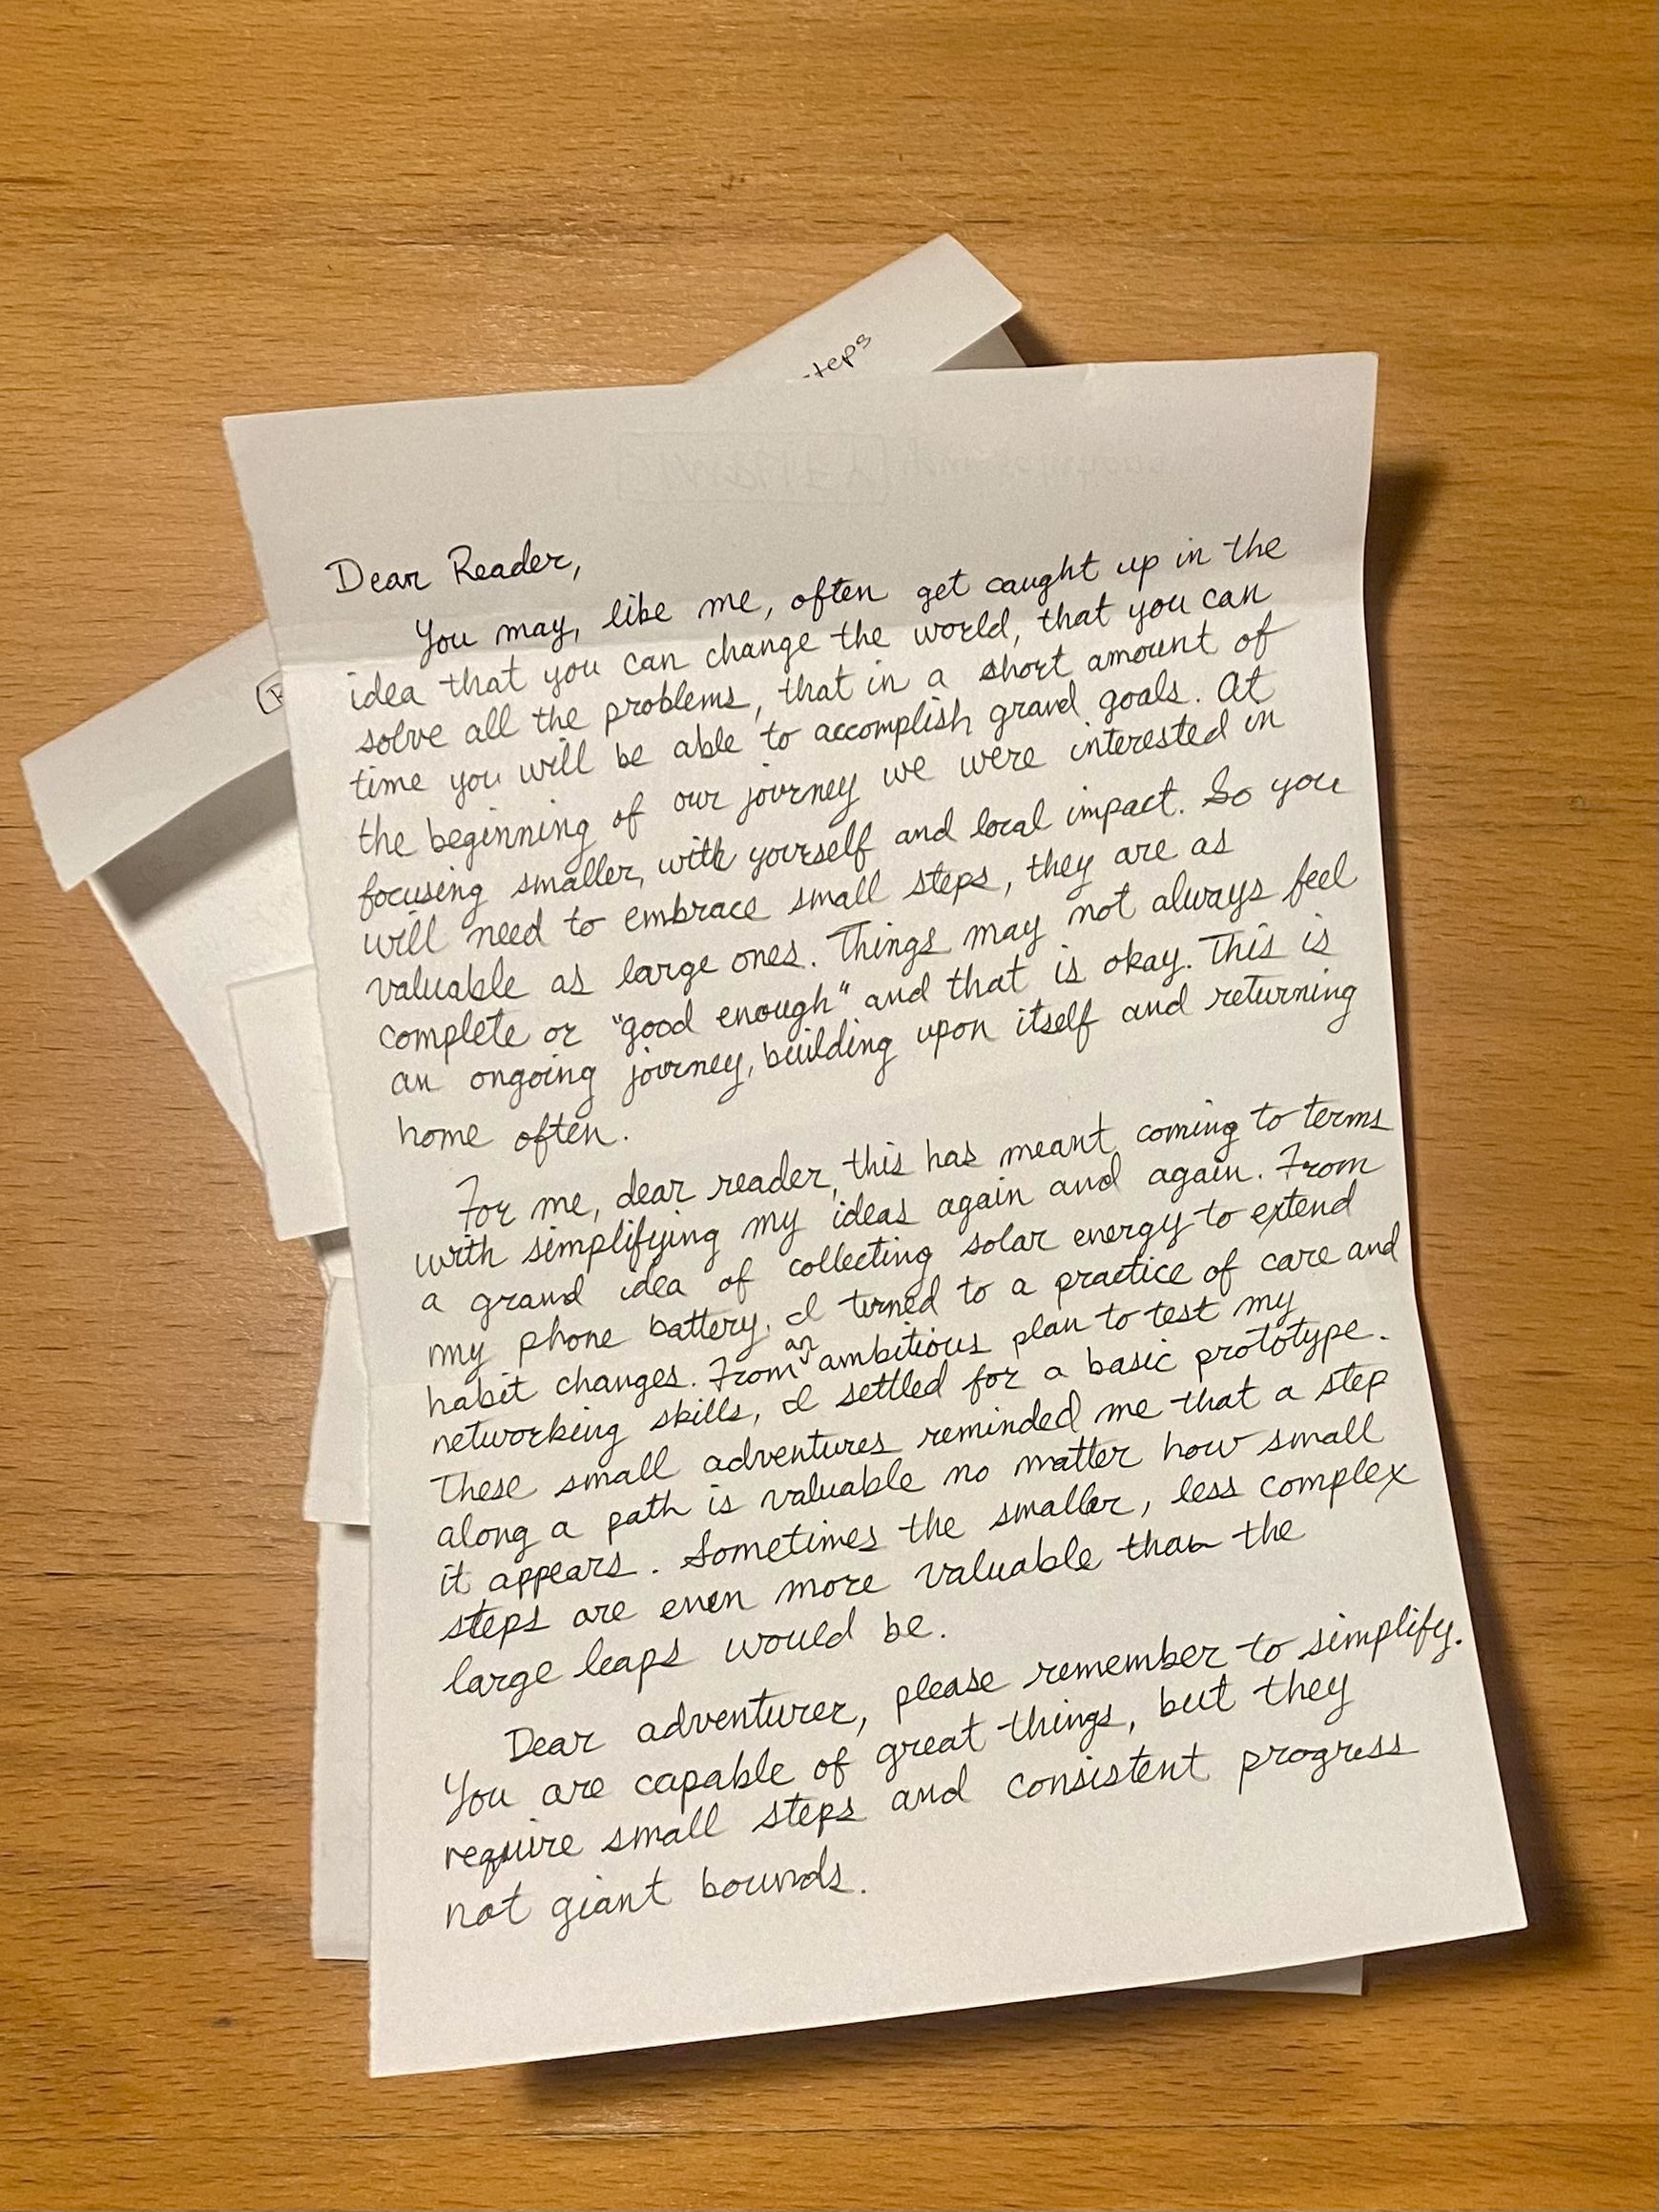 steps
Dear Reader,
You may, like me, often get caught up in the
idea that you can change the world, that you can
solve all the problems, that in a short amount of
time you will be able to accomplish grand goals. At
the beginning of our journey we were interested in
focusing smaller, with yourself and local impact. So you
will need to embrace small steps, they are as
valuable as large ones. Things may not always feel
complete or "good enough" and that is okay. This is
an ongoing journey, building upon itself and returning
home often.
For me, dear reader, this has meant coming to terms
with simplifying my ideas again and again. From
a grand idea of collecting solar energy to extend
my phone battery, I turned to a practice of care and
habit changes. From an ambitious plan to test my
networking skills, I settled for a basic prototype.
These small adventures reminded me that a step
along a path is valuable no matter how small
it appears. Sometimes the smaller, less complex
steps are even more valuable than the
large leaps would be.
Dear adventurer, please remember to simplify.
You are capable of great things, but they
require small steps and consistent progress
not giant bounds.